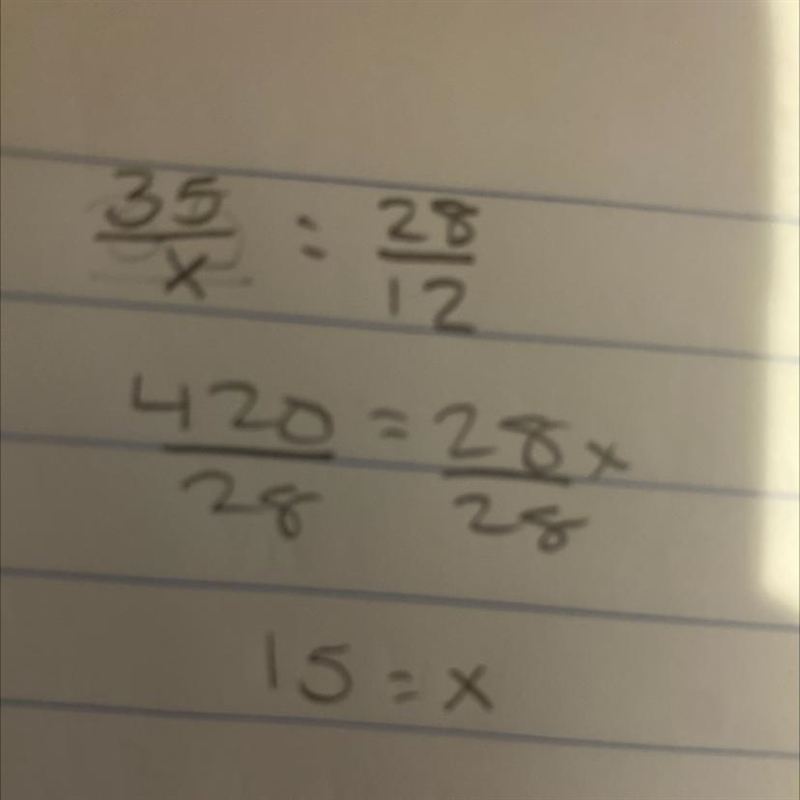 35/x = 28/12
420/28 = 28x/28
15 = x